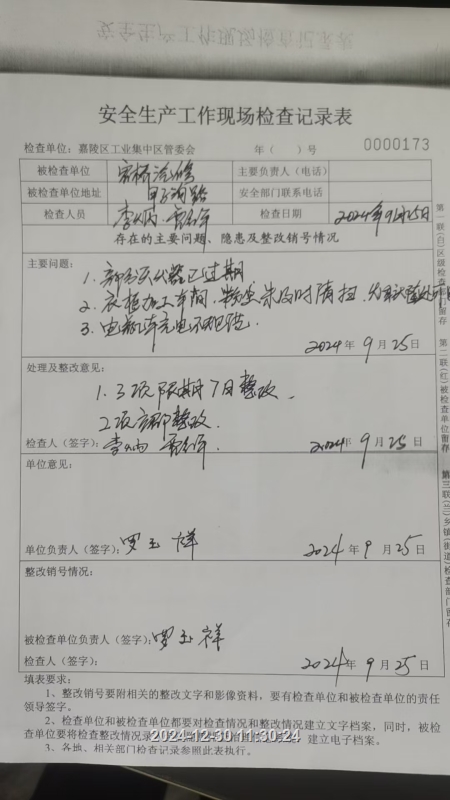 安全生产工作现场检查记录表
检查单位：嘉陵区工业集中区管委会 年（ ）号 0000173
被检查单位 主要负责人（电话）
被检查单位地址 安全部门联系电话
检查人员 检查日期 2024年9月25日
存在的主要问题、隐患及整改销号情况
主要问题：
1. 部分灭火器已过期
2. 加工车间 未及时清扫
3. 电瓶车充电不规范
2024年9月25日
处理及整改意见：
1.3项限期7日整改
2项立即整改.
检查人（签字）： 2024年9月25日
单位意见：
单位负责人（签字）：罗玉祥 2024年9月25日
整改销号情况：
被检查单位负责人（签字）：罗玉祥
检查人（签字）： 2024年9月25日
填表要求：
1、整改销号要附相关的整改文字和影像资料，要有检查单位和被检查单位的责任
领导签字。
2、检查单位和被检查单位都要对检查情况和整改情况建立文字档案，同时，被检
查单位要将检查整改情况录 建立电子档案。
3、各地、相关部门检查记录参照此表执行。
第一联（白）区级检查部门留存
第二联（红）被检查单位留存
第三联（兰）乡镇（街道）检查部门留存
2024-12-30 11:30:24